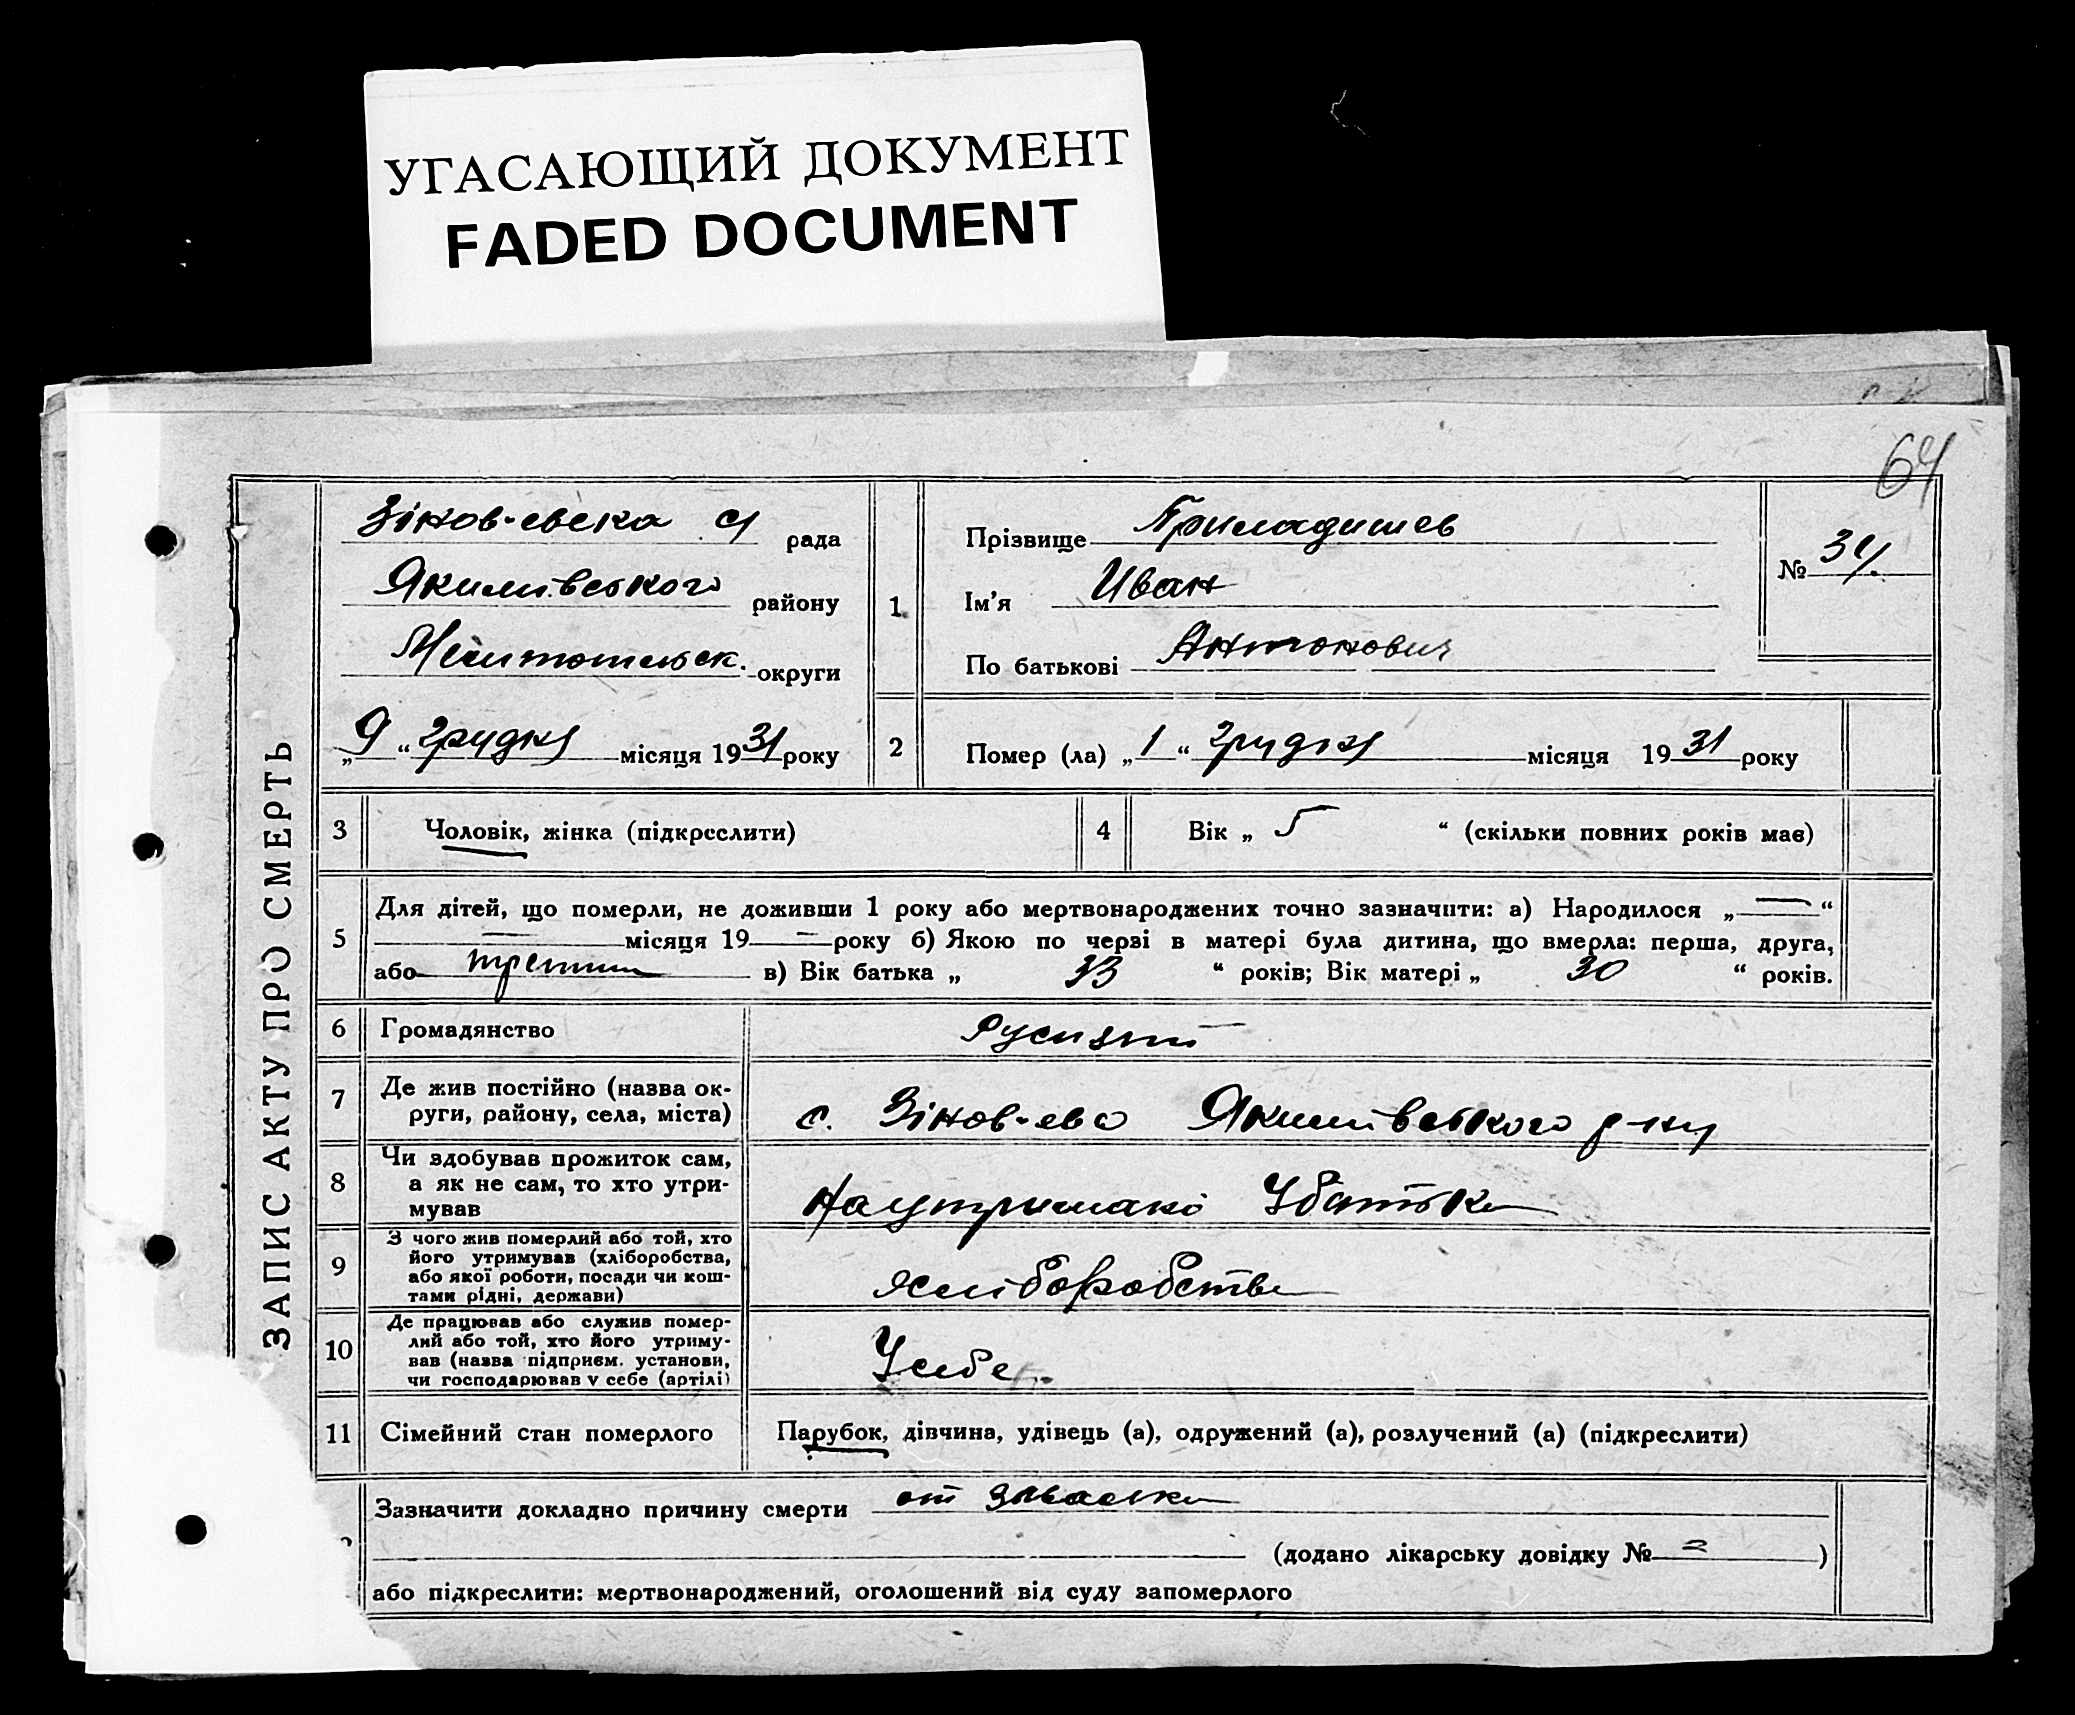 УГАСАЮЩИЙ ДОКУМЕНТ
FADED DOCUMENT
64
ЗАПИС АКТУ ПРО СМЕРТЬ
Зінов-євська с/ рада
Якимівського району
Мелитопільск. округи
„9“ грудня місяця 1931 року
1
Прізвище
Ім'я Иван
По батькові Антонович
№ 34.
2
Помер (ла) „1“ грудня місяця 1931 року
3
Чоловік, жінка (підкреслити)
4
Вік „ 5 “ (скільки повних років має)
5
Для дітей, що померли, не доживши 1 року або мертвонароджених точно зазначити: а) Народилося „—“
— місяця 19 — року б) Якою по черзі в матері була дитина, що вмерла: перша, друга,
або в) Вік батька „ 33 “ років; Вік матері „ 30 “ років.
6
Громадянство
7
Де жив постійно (назва ок-
руги, району, села, міста)
с. Зінов-єво Якимівського р-ну
8
Чи здобував прожиток сам,
а як не сам, то хто утри-
мував
На утримані У батька
9
З чого жив померлий або той, хто
його утримував (хліборобства,
або якої роботи, посади чи кош-
тами рідні, держави)
хліборобства
10
Де працював або служив помер-
лий або той, хто його утриму-
вав (назва підприєм. установи,
чи господарював у себе (артілі)
У себе
11
Сімейний стан померлого
Парубок, дівчина, удівець (а), одружений (а), розлучений (а) (підкреслити)
Зазначити докладно причину смерти от
(додано лікарську довідку № = )
або підкреслити: мертвонароджений, оголошений від суду запомерлого